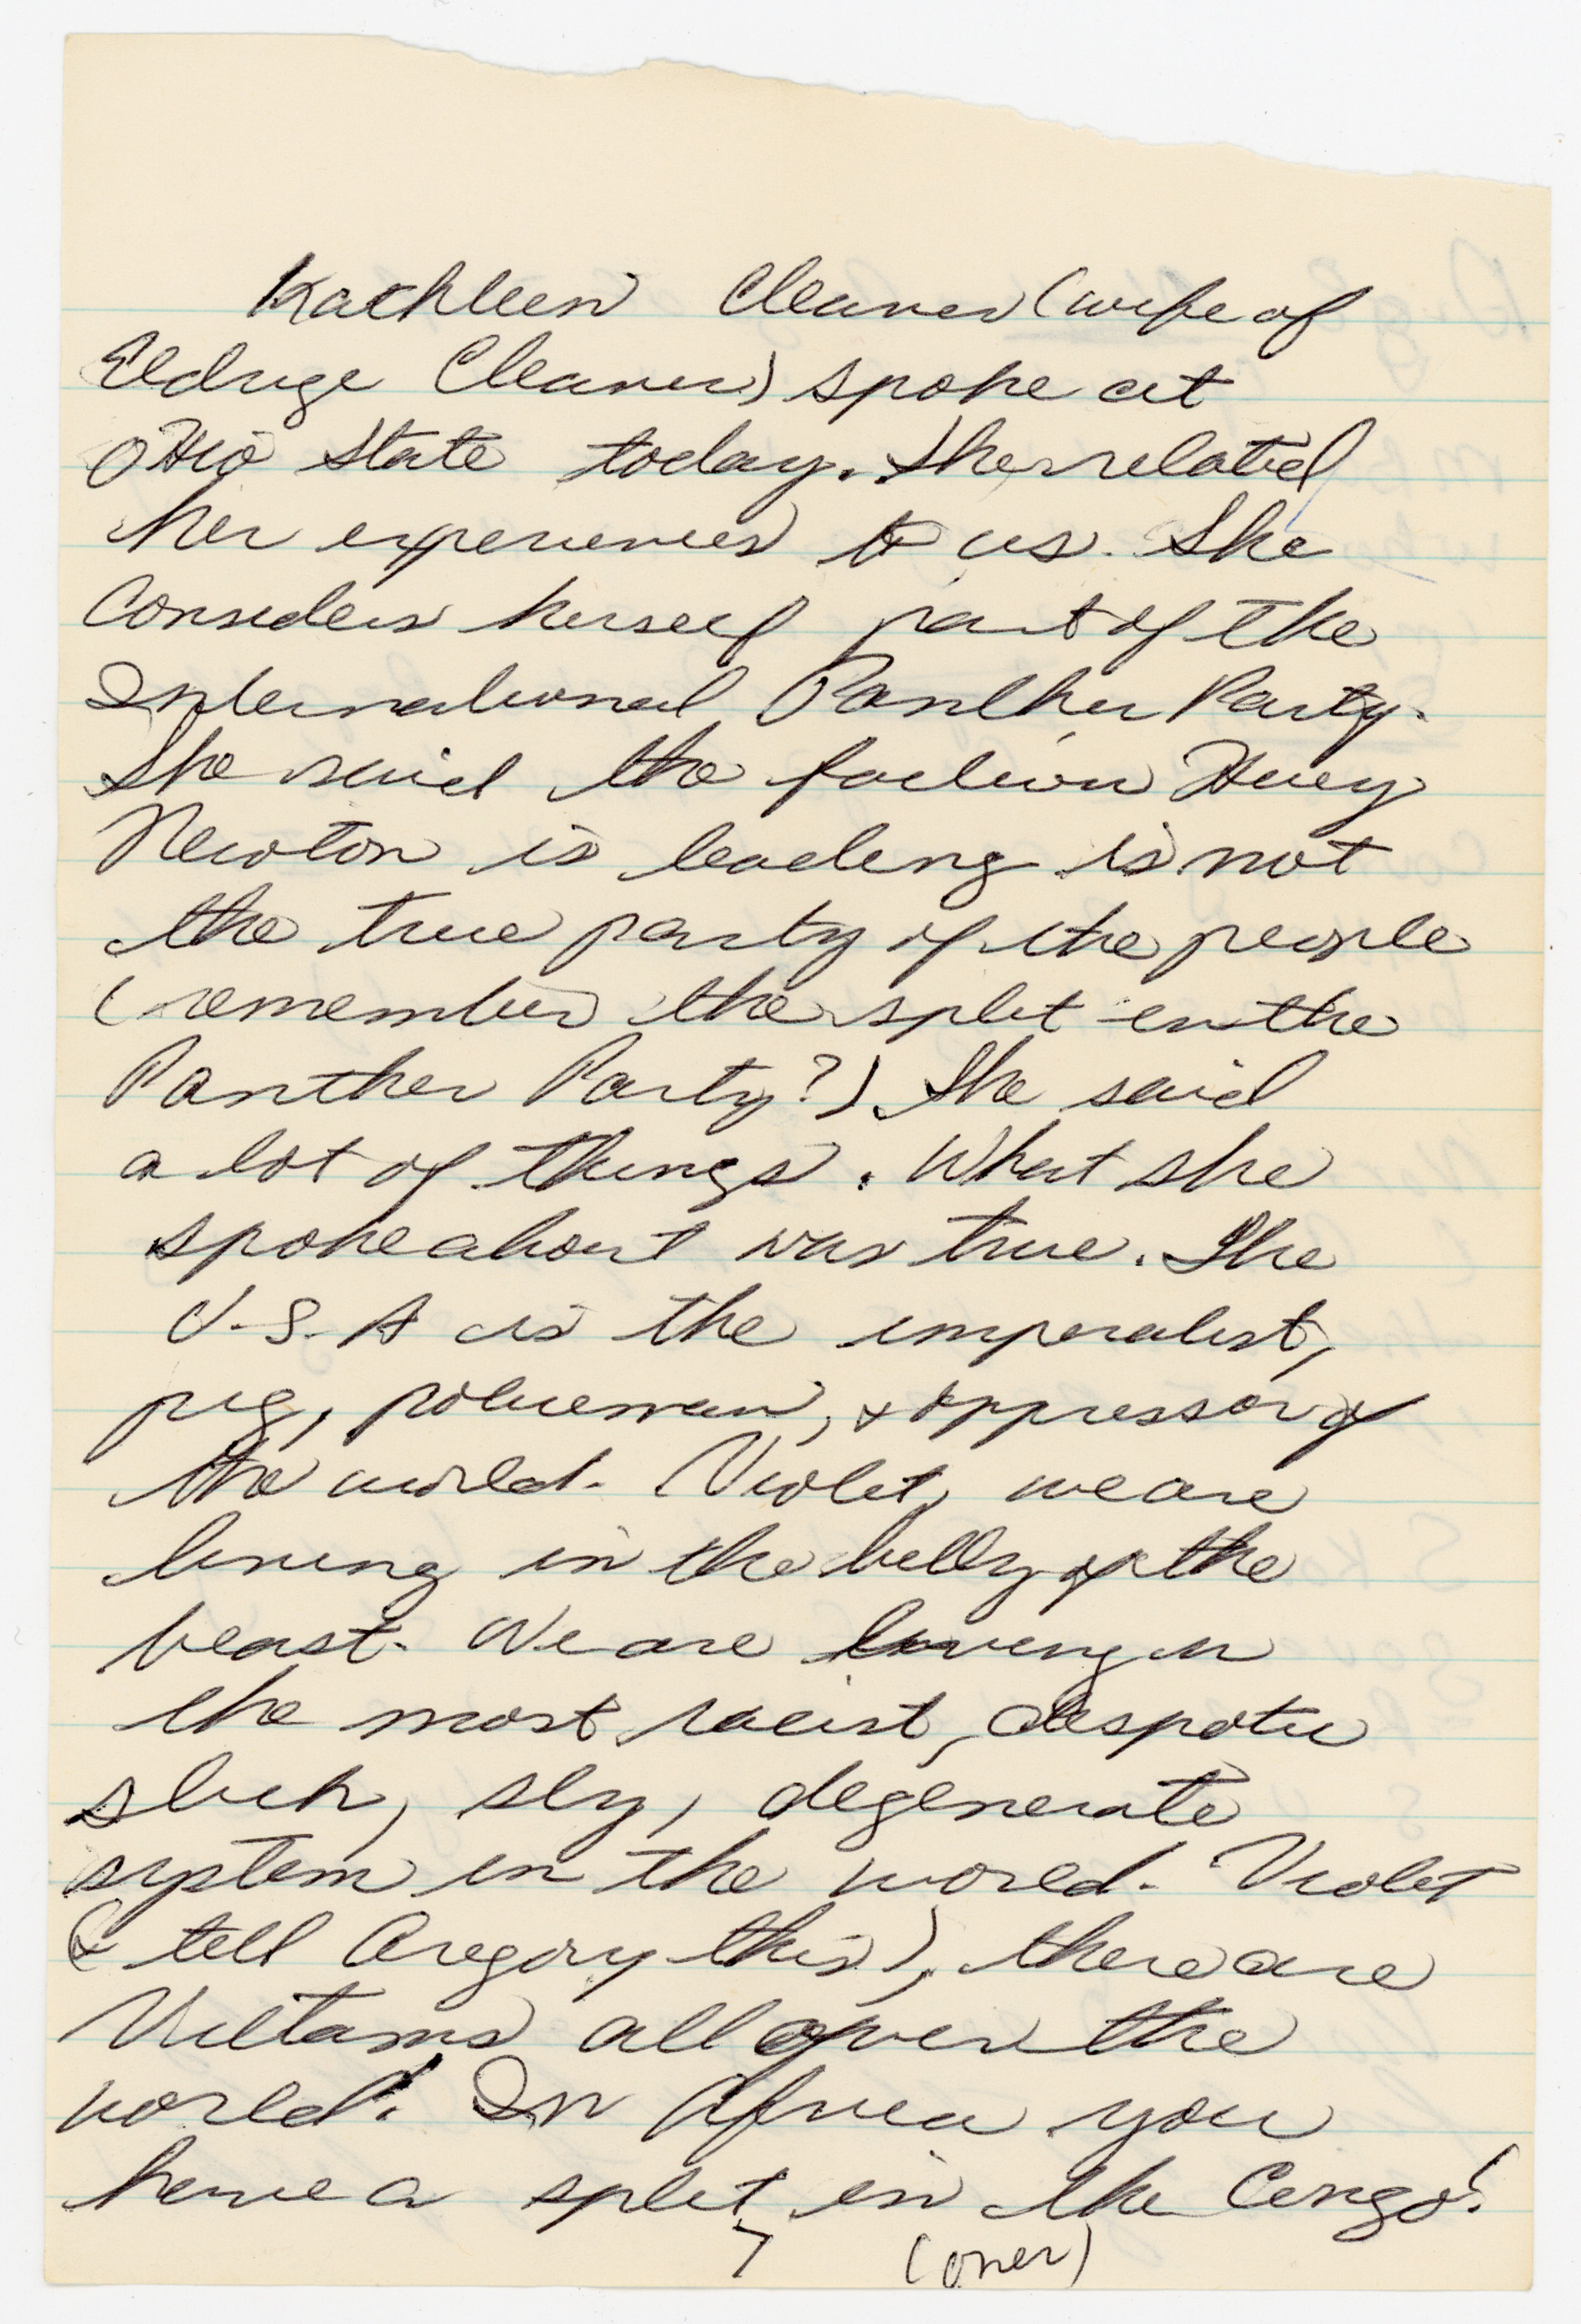 Kathleen Cleaver (wife of
Eldrige Cleaver) spoke at
Ohio State today. She related
her experiences to us. She
Considers herself part of the
International Panther Party.
She said the faction Huey
Newton is leading is not
the true party of the people
(remember the split in the
Panther Party?) She said
a lot of things. What she
spoke about was true. The
U.S.A is the imperalist,
pig, policeman, & oppressor of
the world. Violet, we are
living in the belly of the
beast. We are living in
the most racist, despotic
slick, sly, degenerate
system in the world. Violet
(& tell Gregory this), there are
Vietams all over the
world. In Africa you
have a split in the Congo!
7 (over)